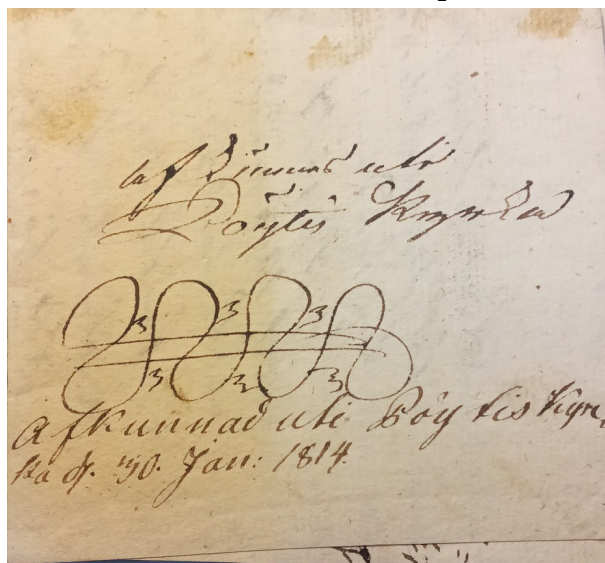 af Kunnas uti
Pöytis Kyrka
Afkunnad uti Pöytis Kyr,
ka d. 30. Jan: 1814.